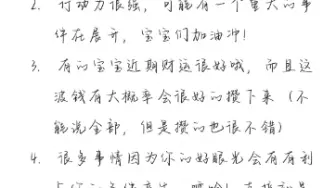 2. 行动力很强，可能有一个重大的事
件在展开，宝宝们加油冲！
3. 有的宝宝近期财运很好哦，而且这
波钱有大概率会很好的攒下来（不
能说全部，但是攒的也很不错）
4. 很多事情因为你的好眼光会有有利